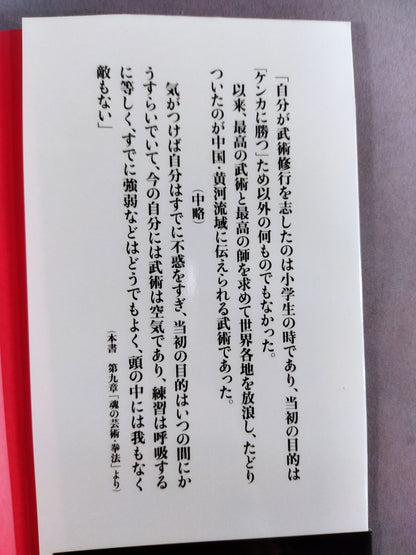 「自分が武術修行を志したのは小学生の時であり、当初の目的は
「ケンカに勝つ」ため以外の何ものでもなかった。
以来、最高の武術と最高の師を求めて世界各地を放浪し、たどり
ついたのが中国・黄河流域に伝えられる武術であった。
(中略)
気がつけば自分はすでに不惑をすぎ、当初の目的はいつの間にか
うすらいでいて、今の自分には武術は空気であり、練習は呼吸する
に等しく、すでに強弱などはどうでもよく、頭の中には我もなく
敵もない」
(本書 第九章「魂の芸術・拳法」より)